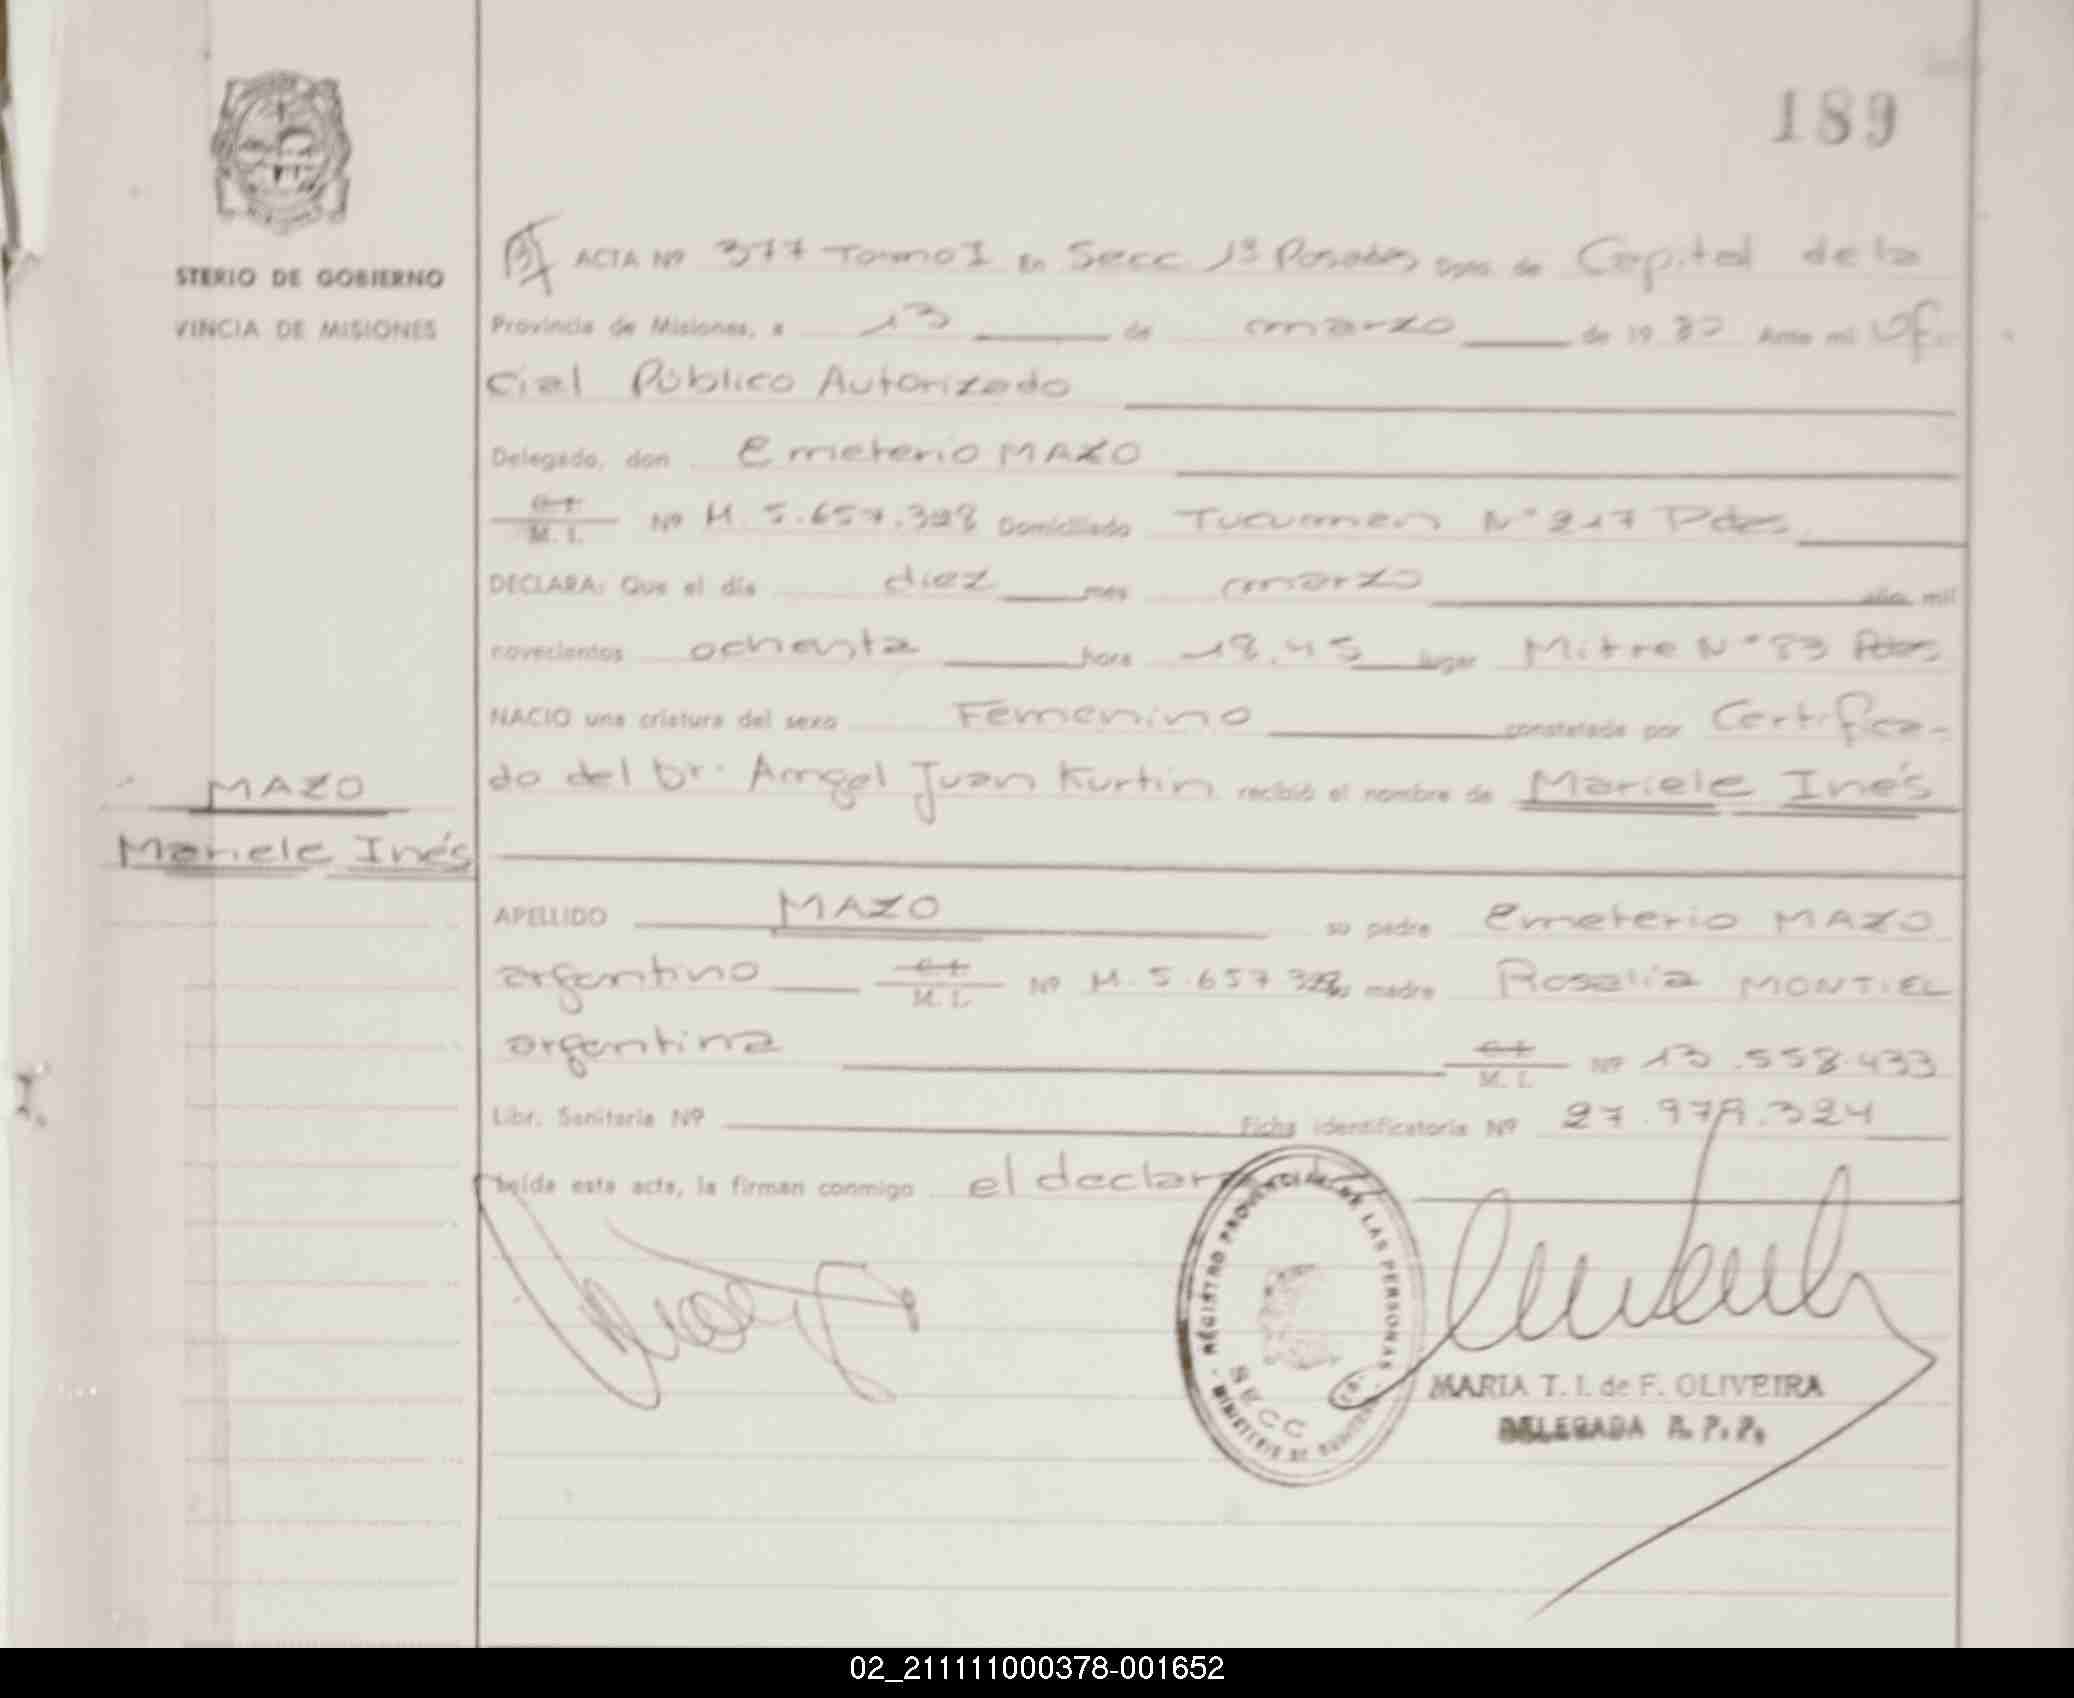 189
STERIO DE GOBIERNO
VINCIA DE MISIONES
ACTA Nº 377 Tomo I En Secc 1ª Posadas Dpto. de Capital de la
Provincia de Misiones, a 13 de marzo de 1980 Ante mi Ofi-
cial Público Autorizado
Delegado, don Emeterio MAZO
C.I.
M. I. Nº M 5.657.328 Domiciliado Tucuman Nº 217 Pdas
DECLARA: Que el día diez mes marzo año mil
novecientos ochenta hora 18.45 lugar Mitre Nº 83 Pdas
NACIO una criatura del sexo Femenino constatado por Certifica-
do del Dr. Angel Juan Kurtin recibió el nombre de Mariele Inés
MAZO
Mariele Inés
APELLIDO MAZO su padre Emeterio MAZO
argentino C.I.
M. I. Nº M. 5.657.328 su madre Rosalia MONTIEL
argentina C.I.
M. I. Nº 13.558.433
Libr. Sanitaria Nº Ficha identificatoria Nº 27.979.324
Leída esta acta, la firman conmigo el declar
REGISTRO PROVINCIAL DE LAS PERSONAS
SECC
MINISTERIO DE GOBIERNO
MARIA T. I. de F. OLIVEIRA
DELEGADA R. P. P.
02_211111000378-001652